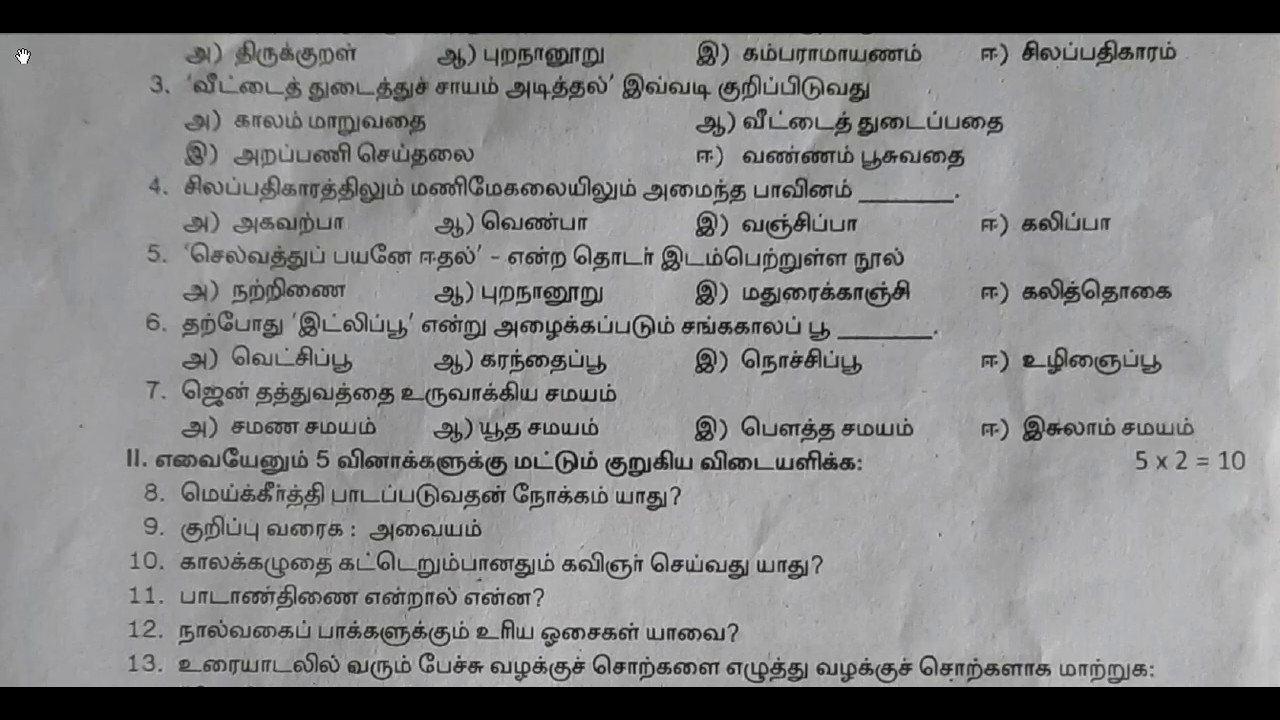 அ) திருக்குறள் ஆ) புறநானூறு இ) கம்பராமாயணம் ஈ) சிலப்பதிகாரம்
3. 'வீட்டைத் துடைத்துச் சாயம் அடித்தல்' இவ்வடி குறிப்பிடுவது
அ) காலம் மாறுவதை ஆ) வீட்டைத் துடைப்பதை
இ) அறப்பணி செய்தலை ஈ) வண்ணம் பூசுவதை
4. சிலப்பதிகாரத்திலும் மணிமேகலையிலும் அமைந்த பாவினம் ________.
அ) அகவற்பா ஆ) வெண்பா இ) வஞ்சிப்பா ஈ) கலிப்பா
5. 'செல்வத்துப் பயனே ஈதல்' - என்ற தொடர் இடம்பெற்றுள்ள நூல்
அ) நற்றிணை ஆ) புறநானூறு இ) மதுரைக்காஞ்சி ஈ) கலித்தொகை
6. தற்போது 'இட்லிப்பூ' என்று அழைக்கப்படும் சங்ககாலப் பூ ________.
அ) வெட்சிப்பூ ஆ) கரந்தைப்பூ இ) நொச்சிப்பூ ஈ) உழிஞைப்பூ
7. ஜென் தத்துவத்தை உருவாக்கிய சமயம்
அ) சமண சமயம் ஆ) யூத சமயம் இ) பௌத்த சமயம் ஈ) இசுலாம் சமயம்
II. எவையேனும் 5 வினாக்களுக்கு மட்டும் குறுகிய விடையளிக்க: 5 x 2 = 10
8. மெய்க்கீர்த்தி பாடப்படுவதன் நோக்கம் யாது?
9. குறிப்பு வரைக : அவையம்
10. காலக்கழுதை கட்டெறும்பானதும் கவிஞர் செய்வது யாது?
11. பாடாண்திணை என்றால் என்ன?
12. நால்வகைப் பாக்களுக்கும் உரிய ஓசைகள் யாவை?
13. உரையாடலில் வரும் பேச்சு வழக்குச் சொற்களை எழுத்து வழக்குச் சொற்களாக மாற்றுக: